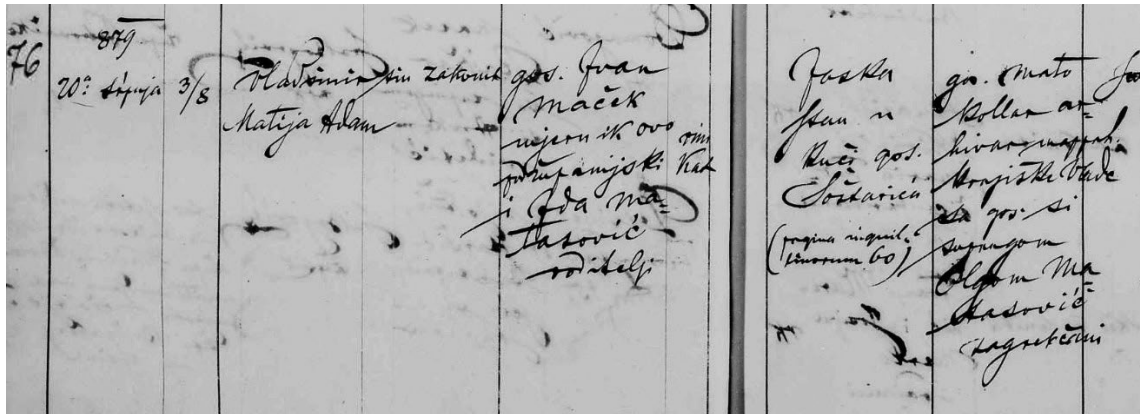 76
879
20a srpnja
3/8
Vladimir
Matija Adam
sin zakonit
gos. Ivan
Maček
mjernik ovo
podžupanijski
i Ida Ma=
tasović
roditelji
rim
kat
Jaska
stan u
kući gos.
Šoštarića
(pagina inquili=
tinorum 60)
gos. Mato
Kollar ar=
hivar
krajiške vlade
sa gos. si
suprugom
Olgom Ma=
tasović
zagrebčani